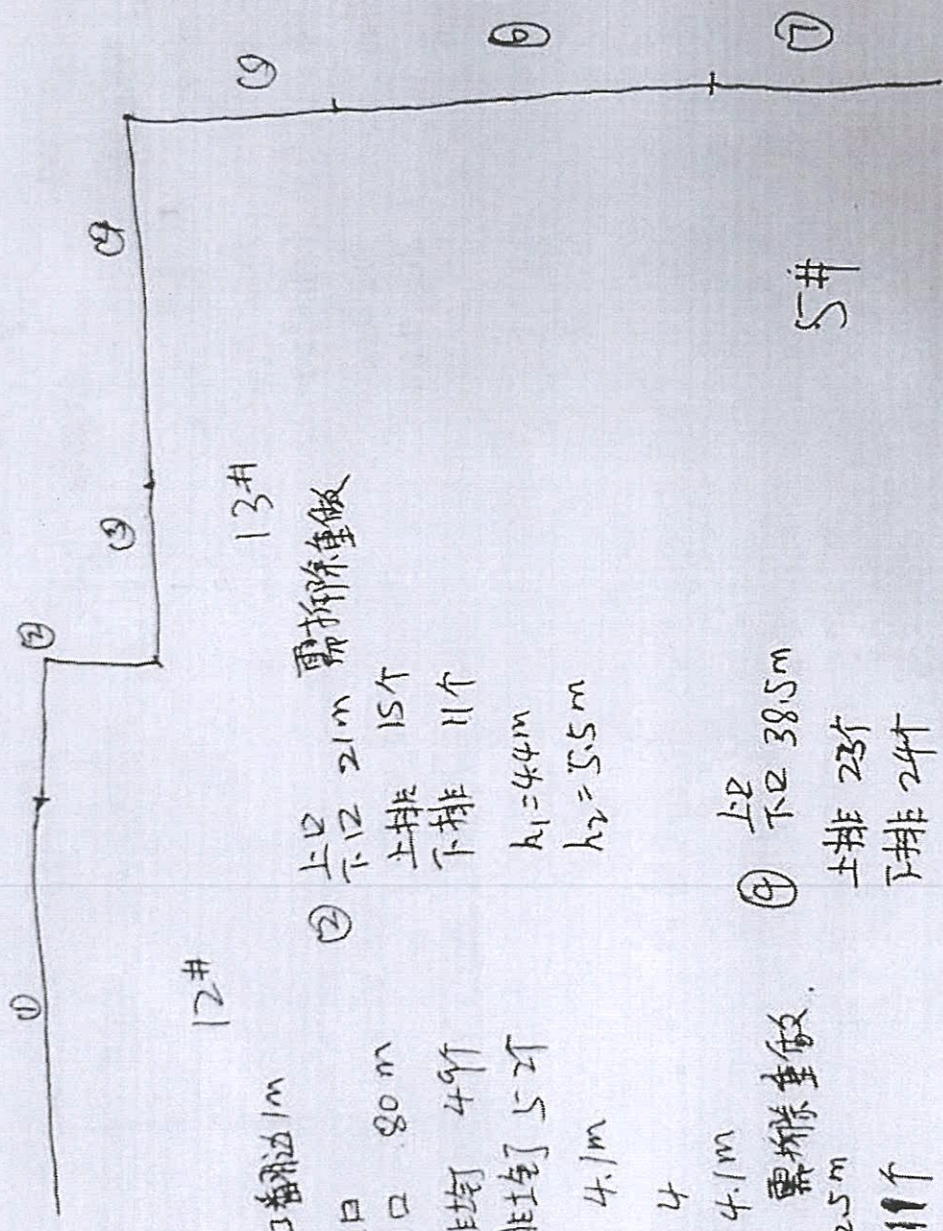 ① ② ③ ④ ⑤ ⑥ ⑦
12# 13# 5#
口翻边1m
口
口 80m
排锚钉 49个
排锚钉 52个
4.1m
4
4.1m
需拆除重做.
2.5m
11个
② 上口
下口 21m 需拆除重做
上排 15个
下排 11个
h₁=4.4m
h₂=5.5m
④ 上口
下口 38.5m
上排 23个
下排 24个